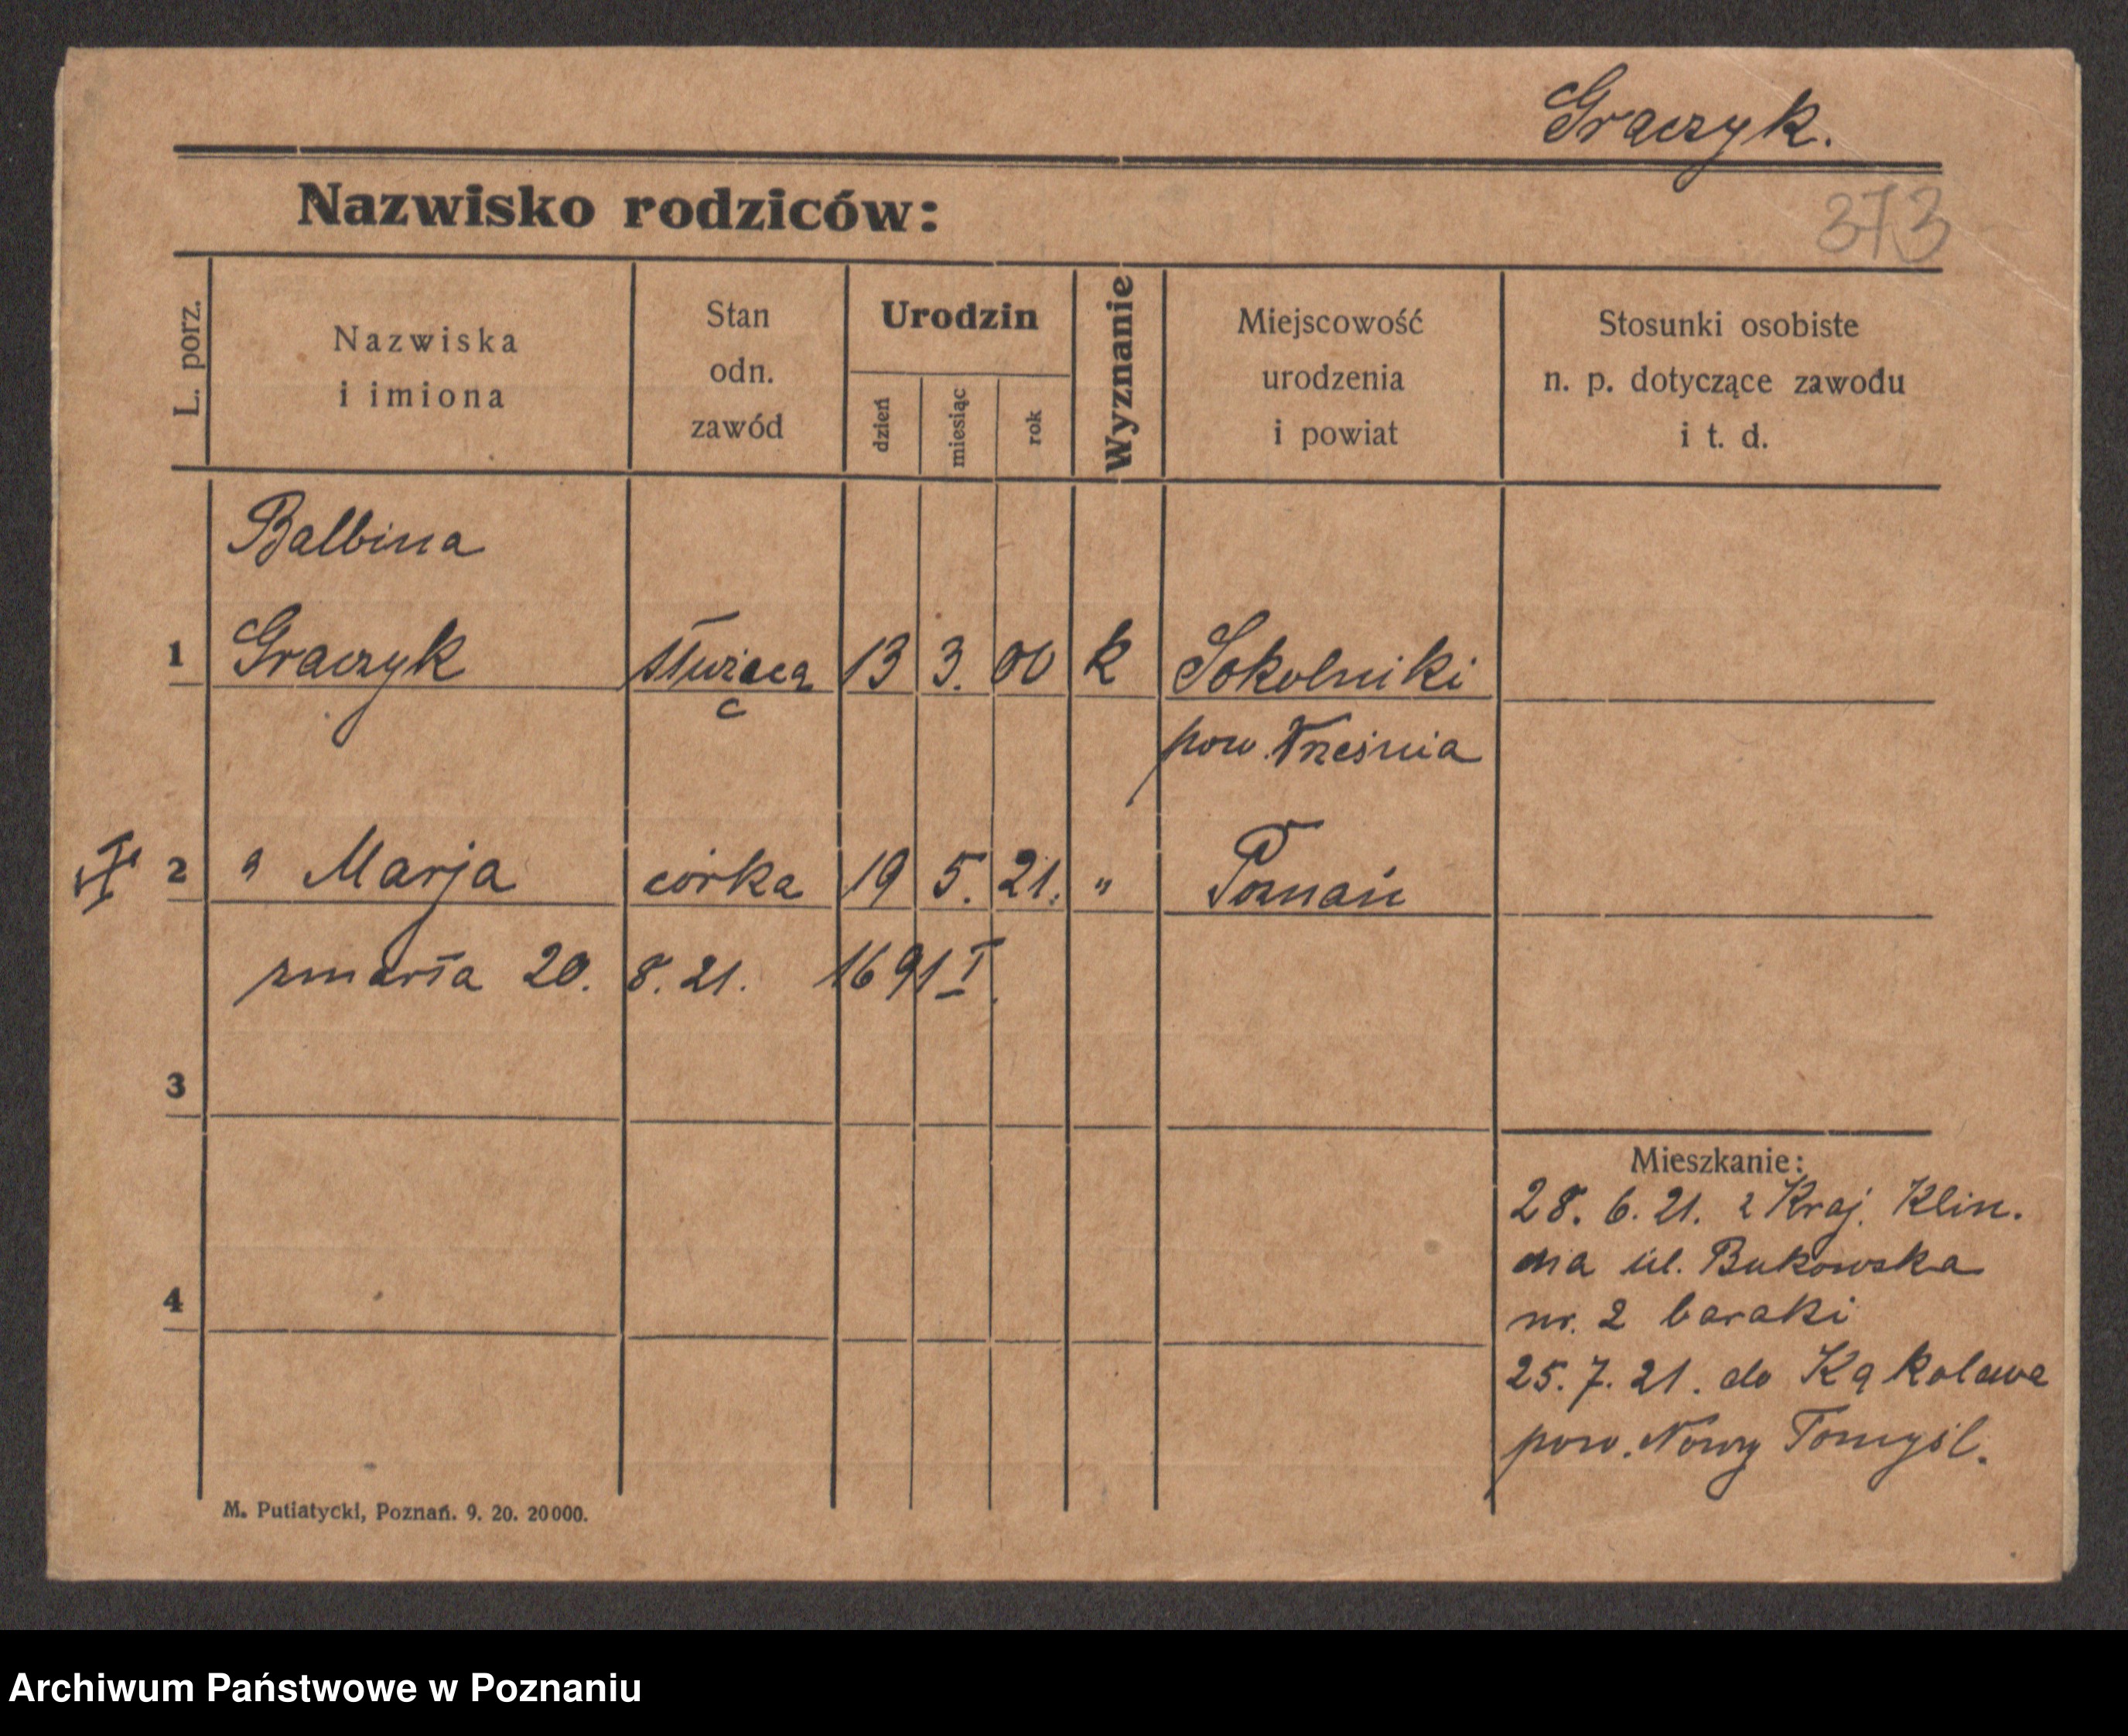 Graczyk.
373
Nazwisko rodziców:
L. porz.
Nazwiska
i imiona
Stan
odn.
zawód
Urodzin
dzień
miesiąc
rok
Wyznanie
Miejscowość
urodzenia
i powiat
Stosunki osobiste
n. p. dotyczące zawodu
i t. d.
Balbina
1 Graczyk służąca 13 3. 00 k Sokolniki
pow. Września
2 " Marja córka 19 5. 21. " Poznań
zmarła 20. 8. 21. 1691 I.
3
4
Mieszkanie:
28. 6. 21. z Kraj. Klin.
na ul. Bukowska
nr. 2 baraki
25. 7. 21. do Kąkolewa
pow. Nowy Tomyśl.
M. Putiatycki, Poznań. 9. 20. 20000.
Archiwum Państwowe w Poznaniu